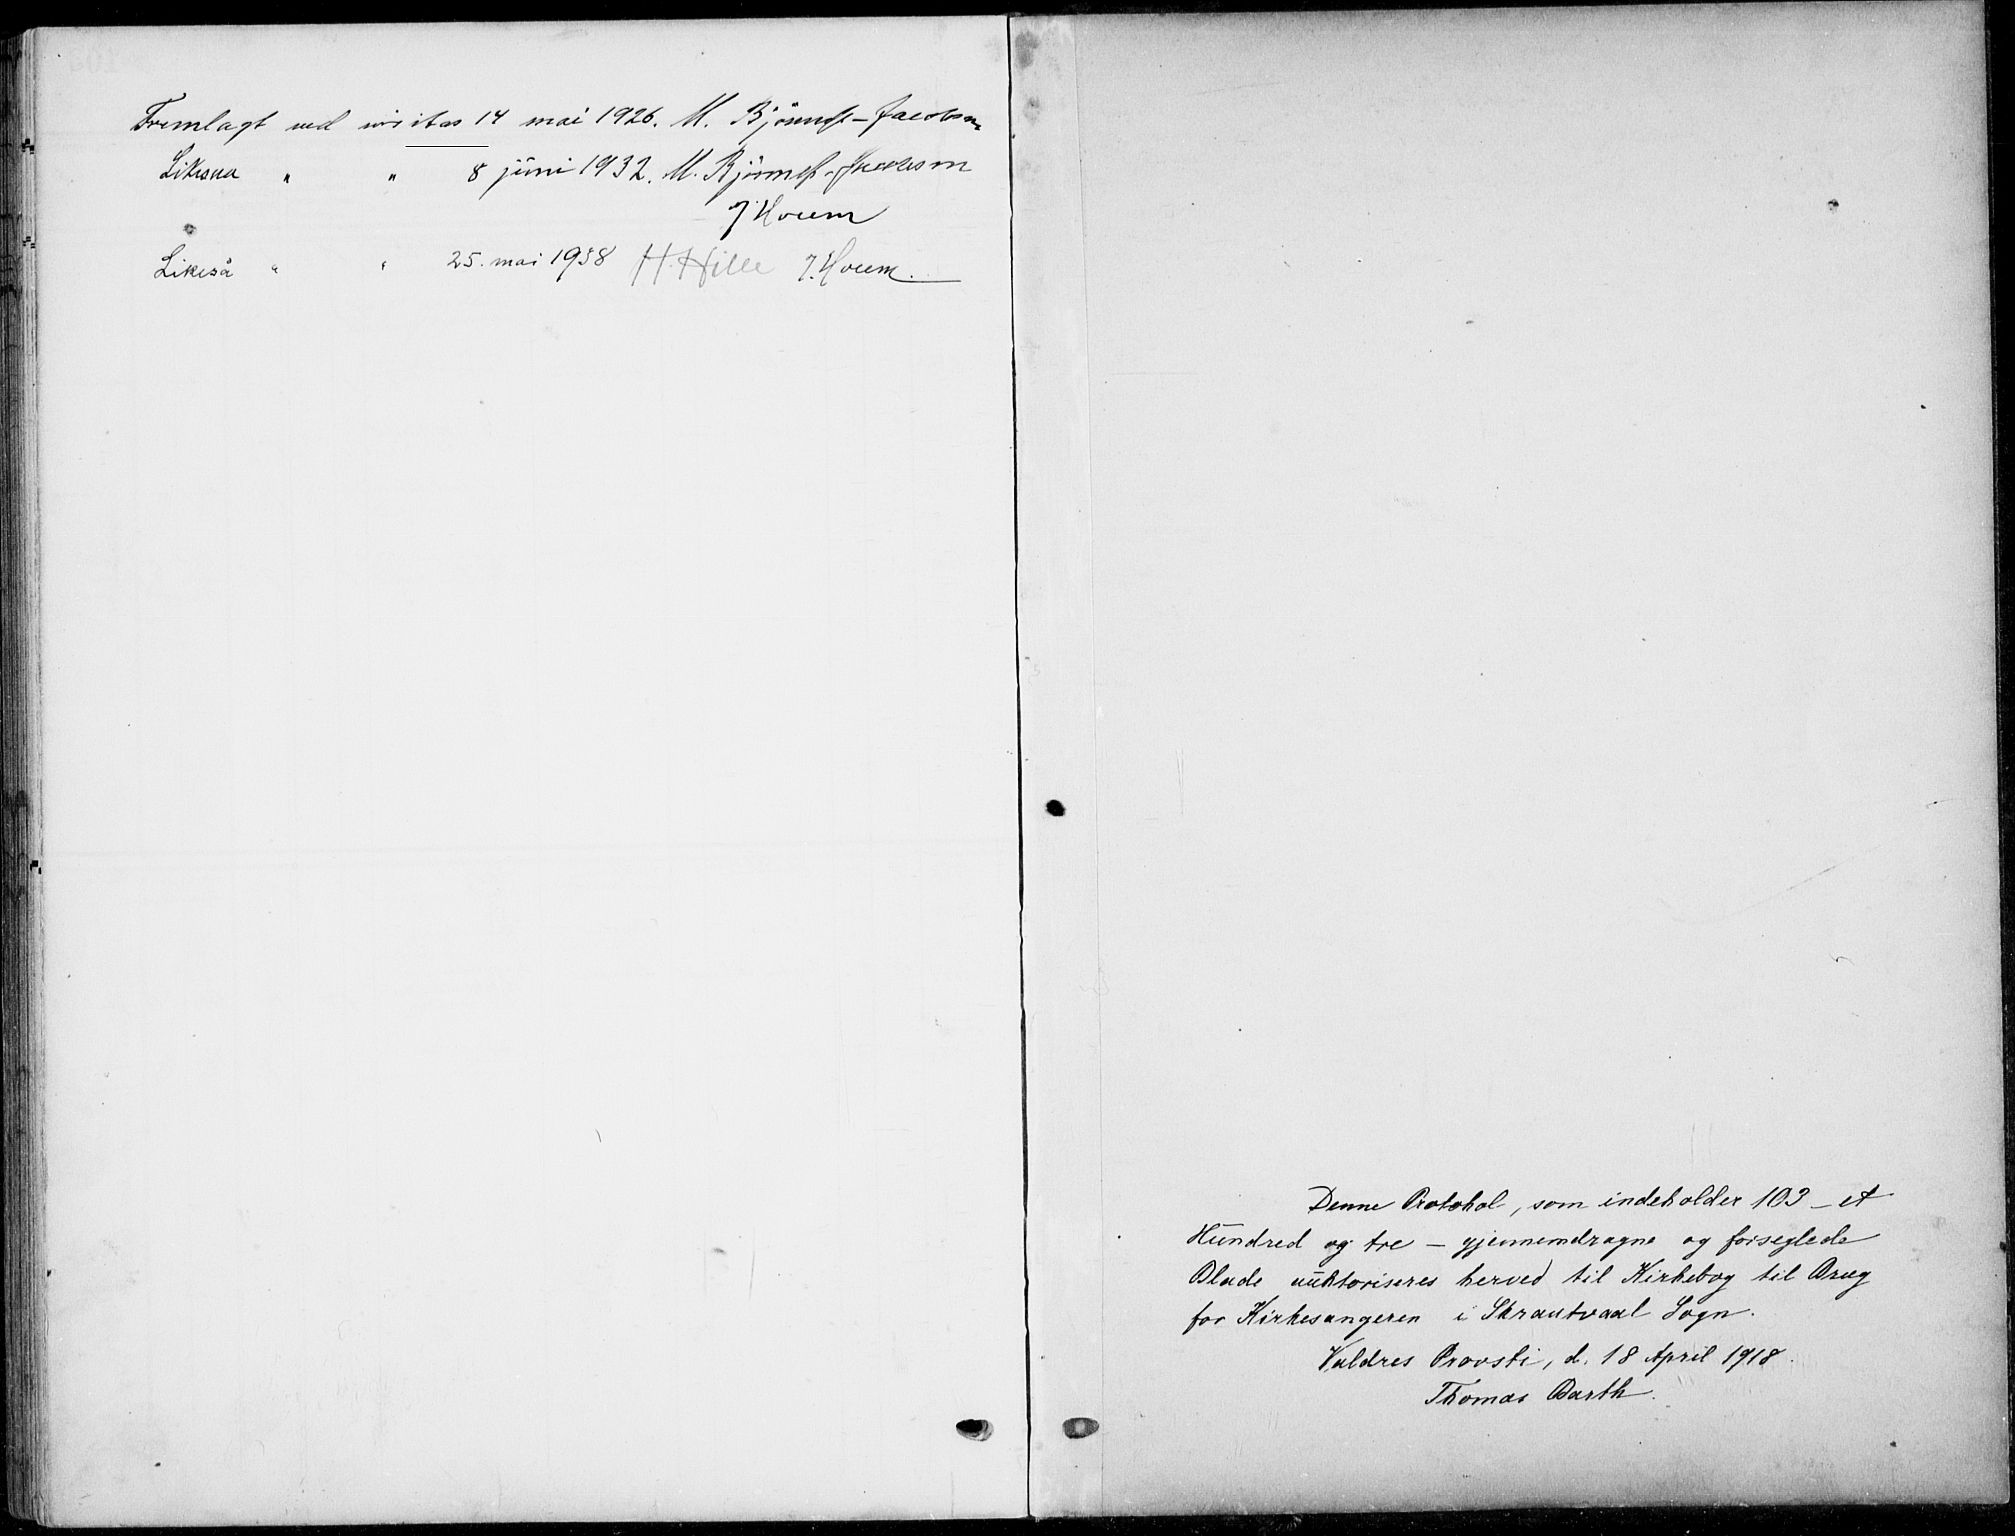 Fremlagt ved visitas 14 mai 1926. M. Bjönness-Jacobsen
Likesaa " " 8 juni 1932. M. Bjönness-Jacobsen
J. Hovem
Likeså " " 25. mai 1938 H. Hille J. Hovem.
Denne Protokol, som indeholder 103 – et
Hundred og tre – gjennemdragne og forseglede
Blade auktoriseres herved til Kirkebog til Brug
for Kirkesangeren i Skrautvaal Sogn.
Valdres Provsti, d. 18 April 1918.
Thomas Barth.